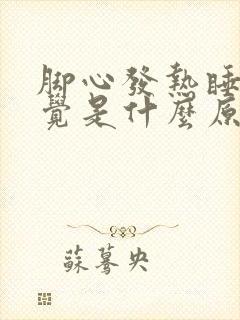 脚心發熱睡
覺是什麼原
蘇驀央